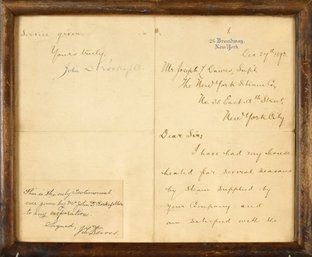 26 Broadway,
New York.
Dec 27th 1892.
Mr. Joseph L. Dawes, Supt.
The New York Steam Co.
New York City
Dear Sir,
I have had my house
heated for several seasons
by steam supplied by
your Company and
am satisfied with the
Service given.
Yours truly,
John D. Rockefeller
This is the only testimonial
ever given by Mr John D. Rockefeller
to any corporation
Signed,